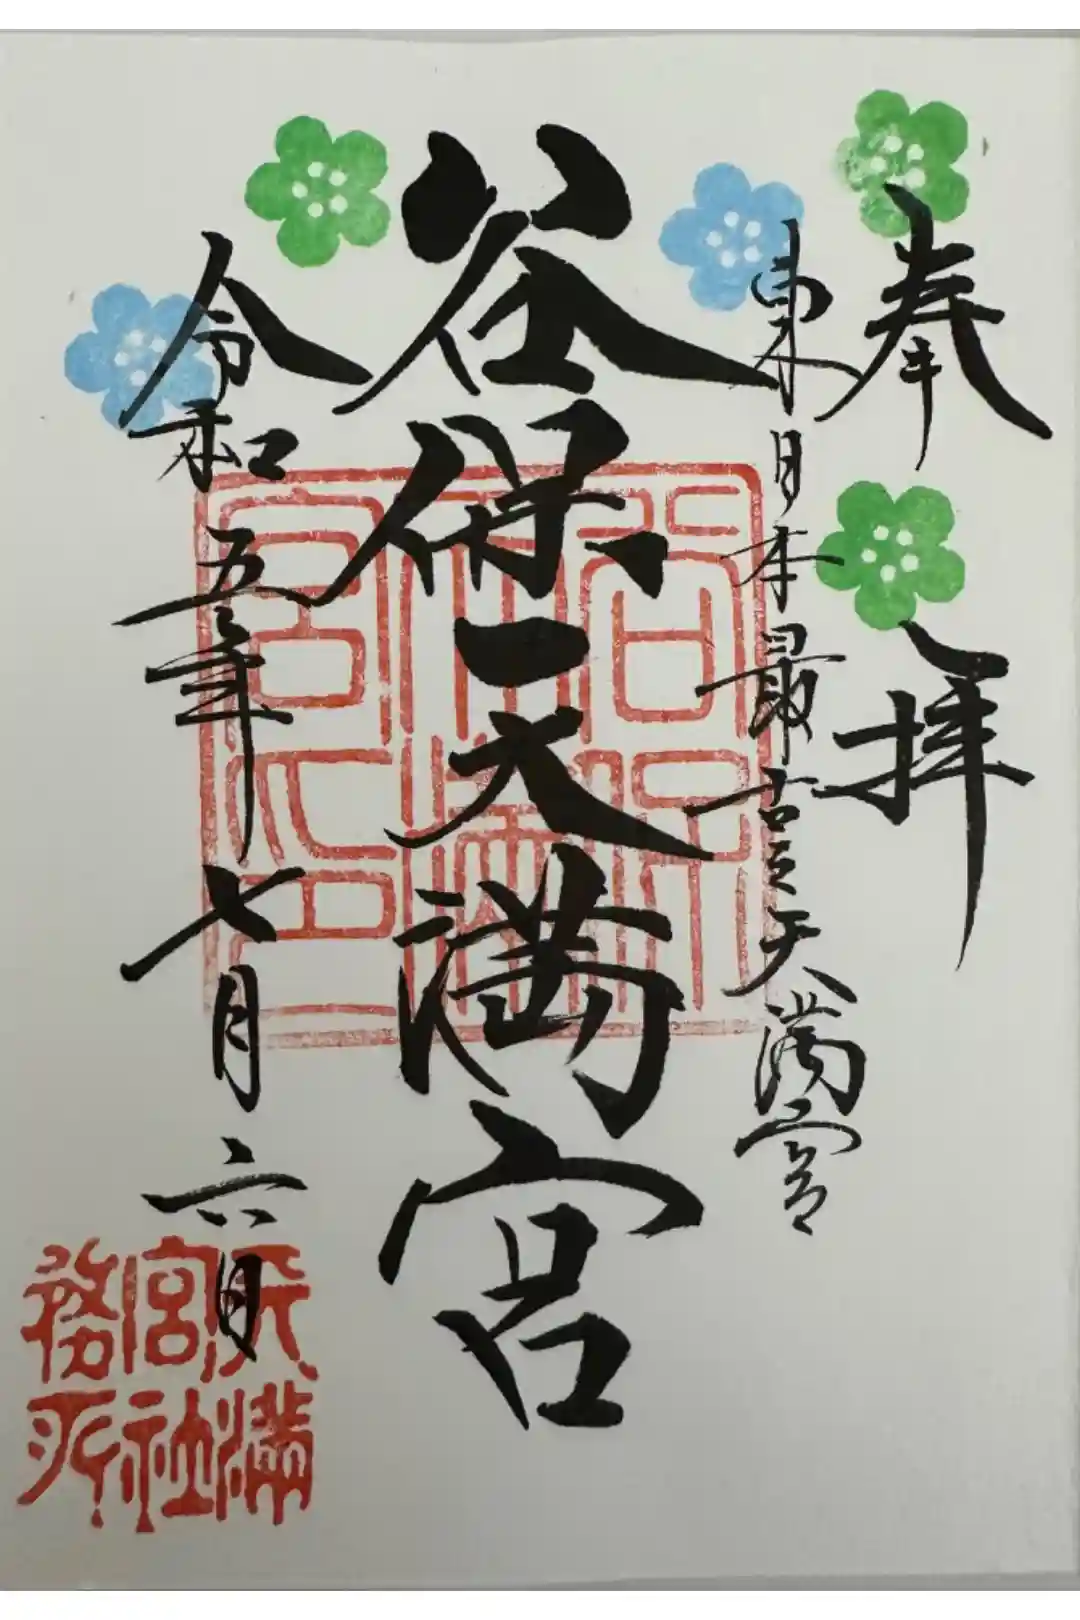 奉拝
東日本最古之天満宮
谷保天満宮
令和五年七月六日
谷保天満宮之印
天満宮社務所